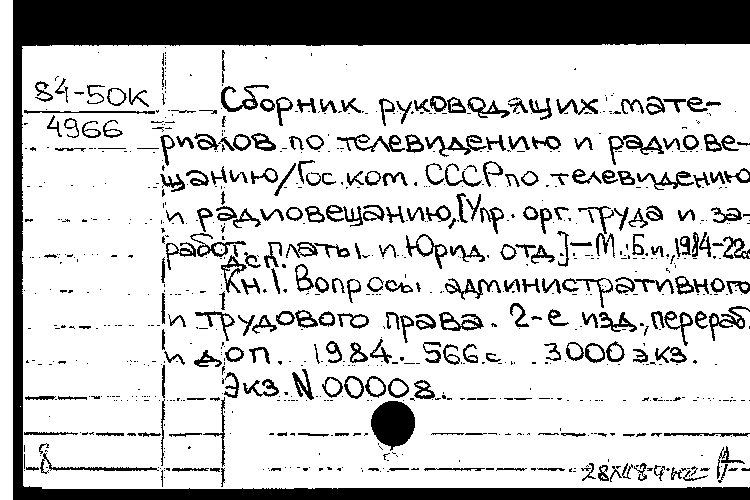 84-50К
4966
Сборник руководящих мате-
риалов по телевидению и радиове-
щанию/Гос. ком. СССР по телевидению
и радиовещанию, [Упр. орг. труда и за-
работ. платы и Юрид. отд.] — М.: Б.и., 1984-22см
ДСП.
Кн. 1. Вопросы административного
и трудового права. 2-е изд., перераб.
и доп. 1984. 566 с. 3000 экз.
Экз. N 00008.
8